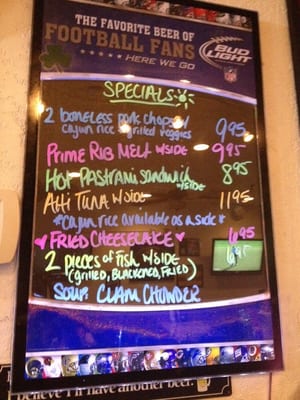 THE FAVORITE BEER OF
FOOTBALL FANS
HERE WE GO
BUD
LIGHT
NFL
SPECIALS
2 boneless pork chops w/
cajun rice + grilled veggies 995
PRIME RIB MELT W/SIDE 995
HOT PASTRAMI SANDWICH
W/SIDE 895
AHI TUNA W/SIDE 1195
*Cajun rice available as a side*
FRIED CHEESECAKE 695
2 pieces of FISH W/SIDE 695
(GRILLED, BLACKENED, FRIED)
SOUP: CLAM CHOWDER
believe I'll have another beer.